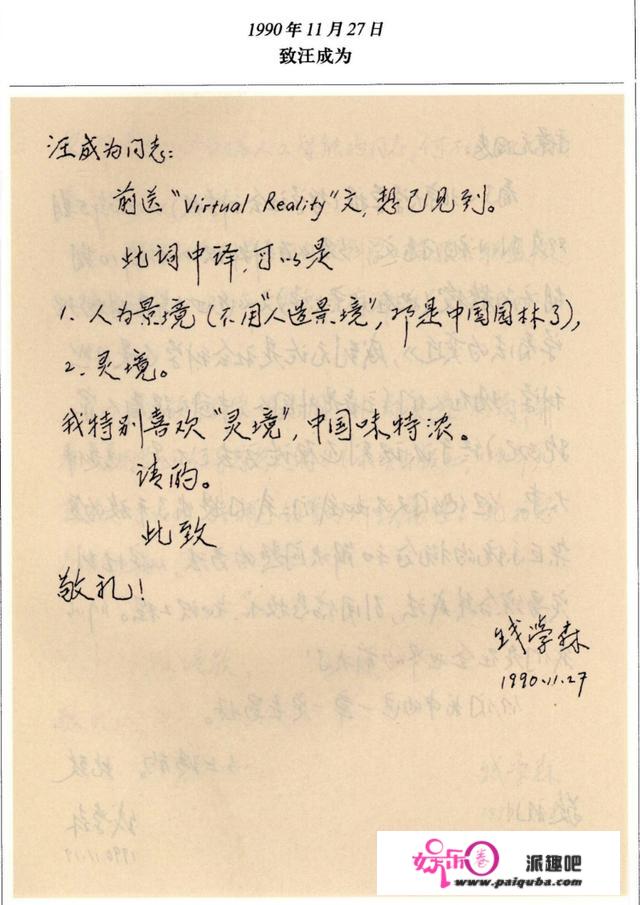 1990年11月27日
致汪成为
汪成为同志:
前送“Virtual Reality”文,想已见到。
此词中译,可以是
1. 人为景境(不用“人造景境”,那是中国园林了),
2. 灵境。
我特别喜欢“灵境”,中国味特浓。
请酌。
此致
敬礼!
钱学森
1990.11.27
娱乐圈
派趣吧
www.paiquba.com